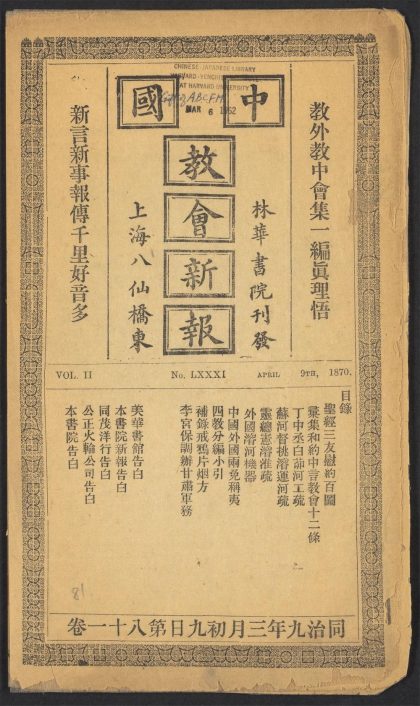 CHINESE-JAPANESE LIBRARY
HARVARD-YENCHING
AT HARVARD UNIVERSITY
MAR 6 1962
中國
教會新報
教外教中會集一編眞理悟
林華書院刊發
上海八仙橋東
新言新事報傳千里好音多
VOL. II No. LXXXI APRIL 9TH, 1870.
目錄
聖經三友慰約百圖
彙集和約中言教會十二條
丁中丞白茆河工疏
蘇河督挑濬運河疏
靈總憲濬淮疏
外國濬河機器
中國外國兩免稱夷
四教分編小引
補錄戒鴉片烟方
李宮保調辦甘肅軍務
美華書館告白
本書院新報告白
同茂洋行告白
公正火輪公司告白
本書院告白
81
同治九年三月初九日第八十一卷